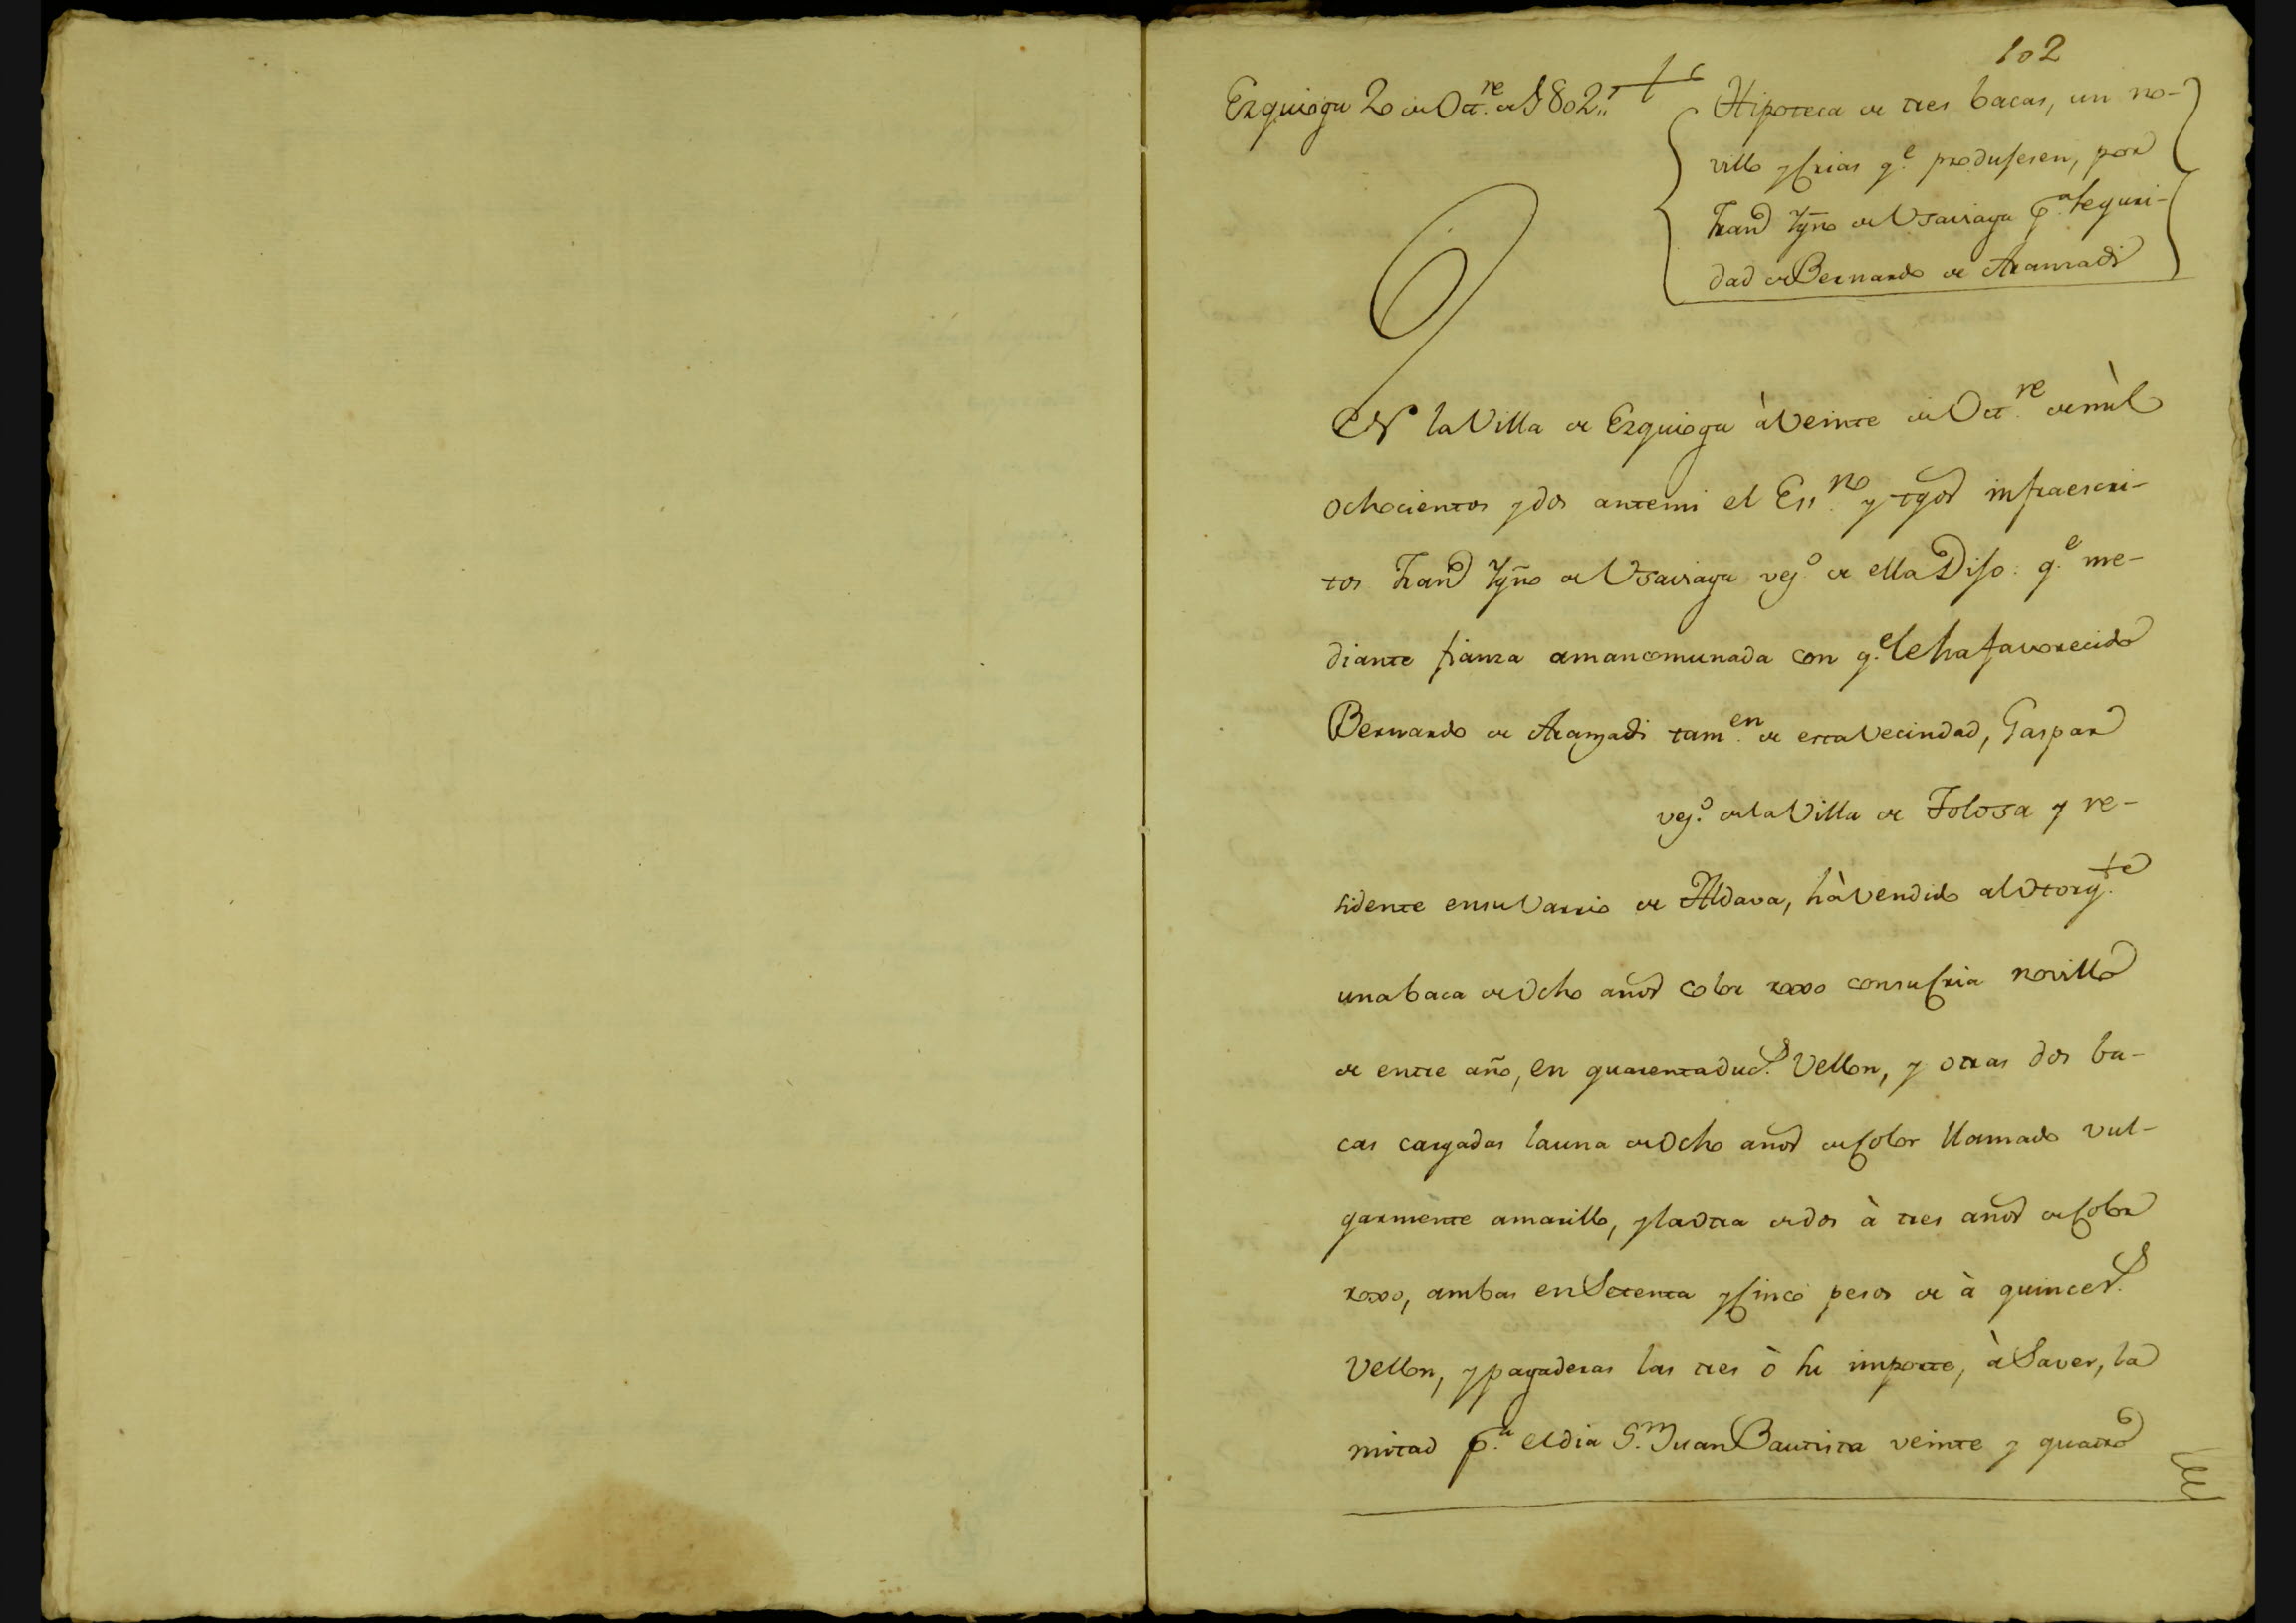 102
Ezquioga 20 de Oct.re de 1802,,
Hipoteca de tres bacas, un no-
villo y crias q.e produjesen, por
Fran.co Ygn.o de Usarraga p.a seguri-
dad de Bernardo de Aranzadi
En la Villa de Ezquioga à Veinte de Oct.re de mil
ochocientos y dos antemi el Ess.no y tgos infraescri-
tos Fran.co Ygn.o de Usarraga vez.o de ella Dijo: q.e me-
diante fianza amancomunada con q.e le ha favorecido
Bernardo de Aranzadi tam.en de esta Vecindad, Gaspar
vez.o de la Villa de Tolosa y re-
sidente en su Varrio de Aldava, hà vendido al Otorg.te
una baca de Ocho años color roxo con su cria novillo
de entre año, en quarenta duc.s Vellon, y otras dos ba-
cas cargadas la una de Ocho años de color llamado vul-
garmente amarillo, y la otra de dos à tres años de color
roxo, ambas en Setenta y cinco pesos de à quince r.s
Vellon, y pagaderas las tres ò su importe, à Saver, la
mitad p.a el dia S.n Juan Bautista veinte y quatro